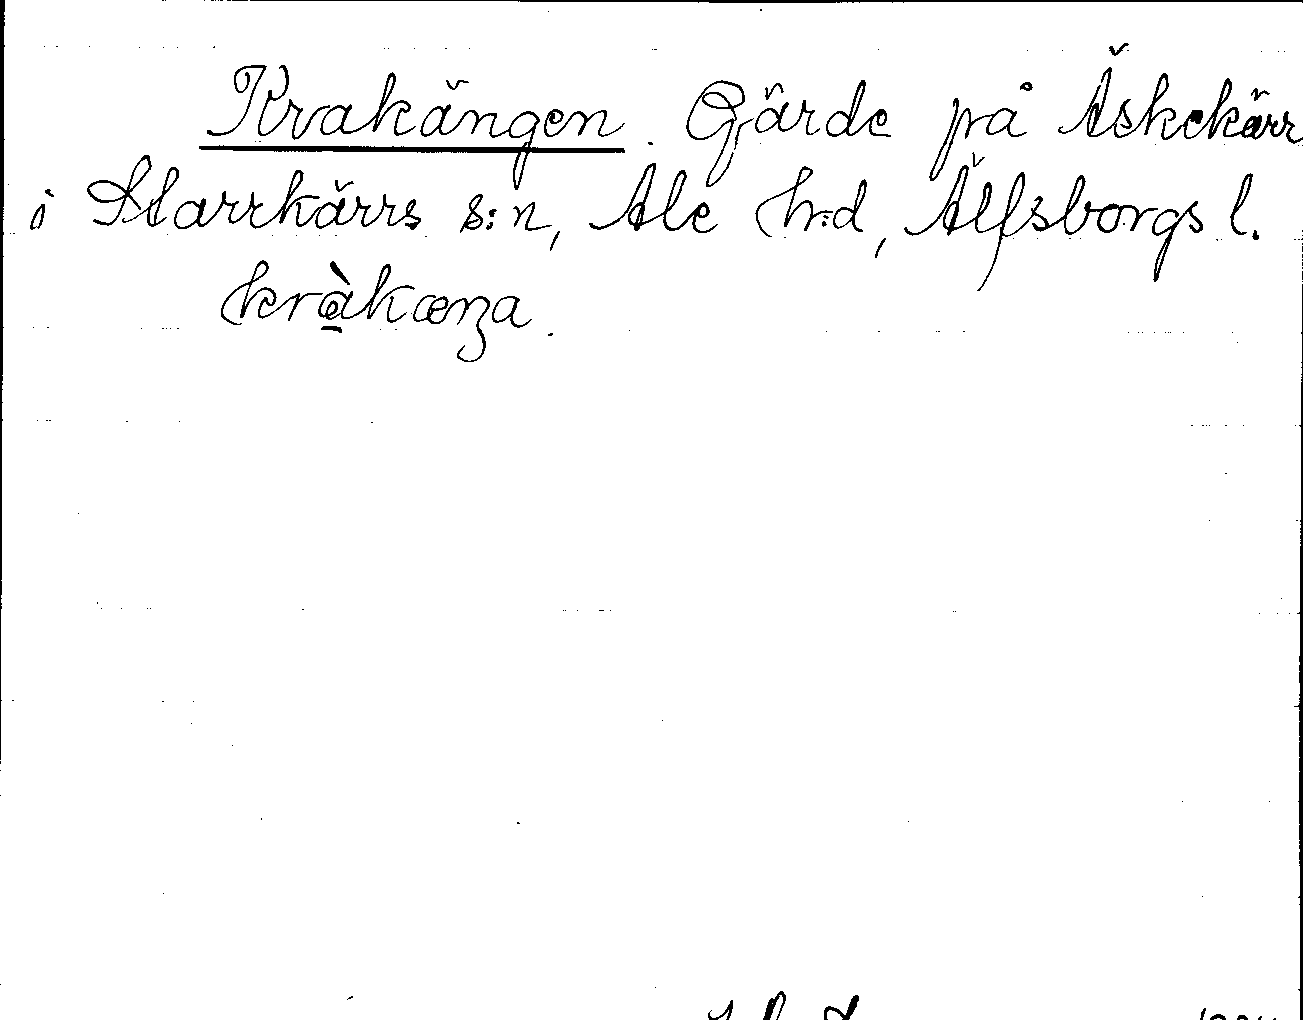 Krakängen. Gärde på Äskekärr
i Starrkärrs s:n, Ale h:d, Älfsborgs l.
kràkæŋa.